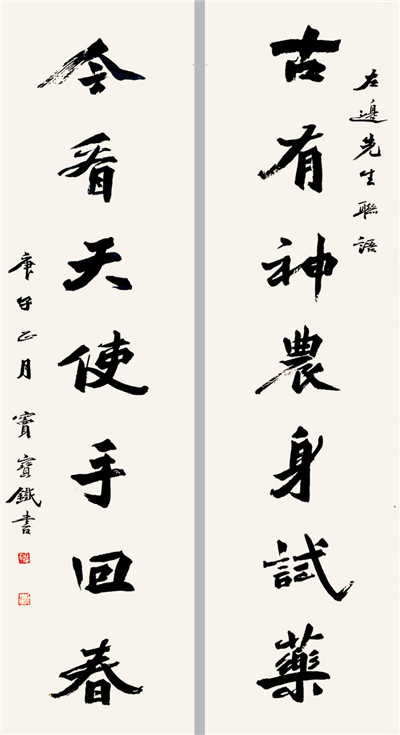 左邊先生聯語
古有神農身試藥
今看天使手回春
庚子正月
竇寶鐵書